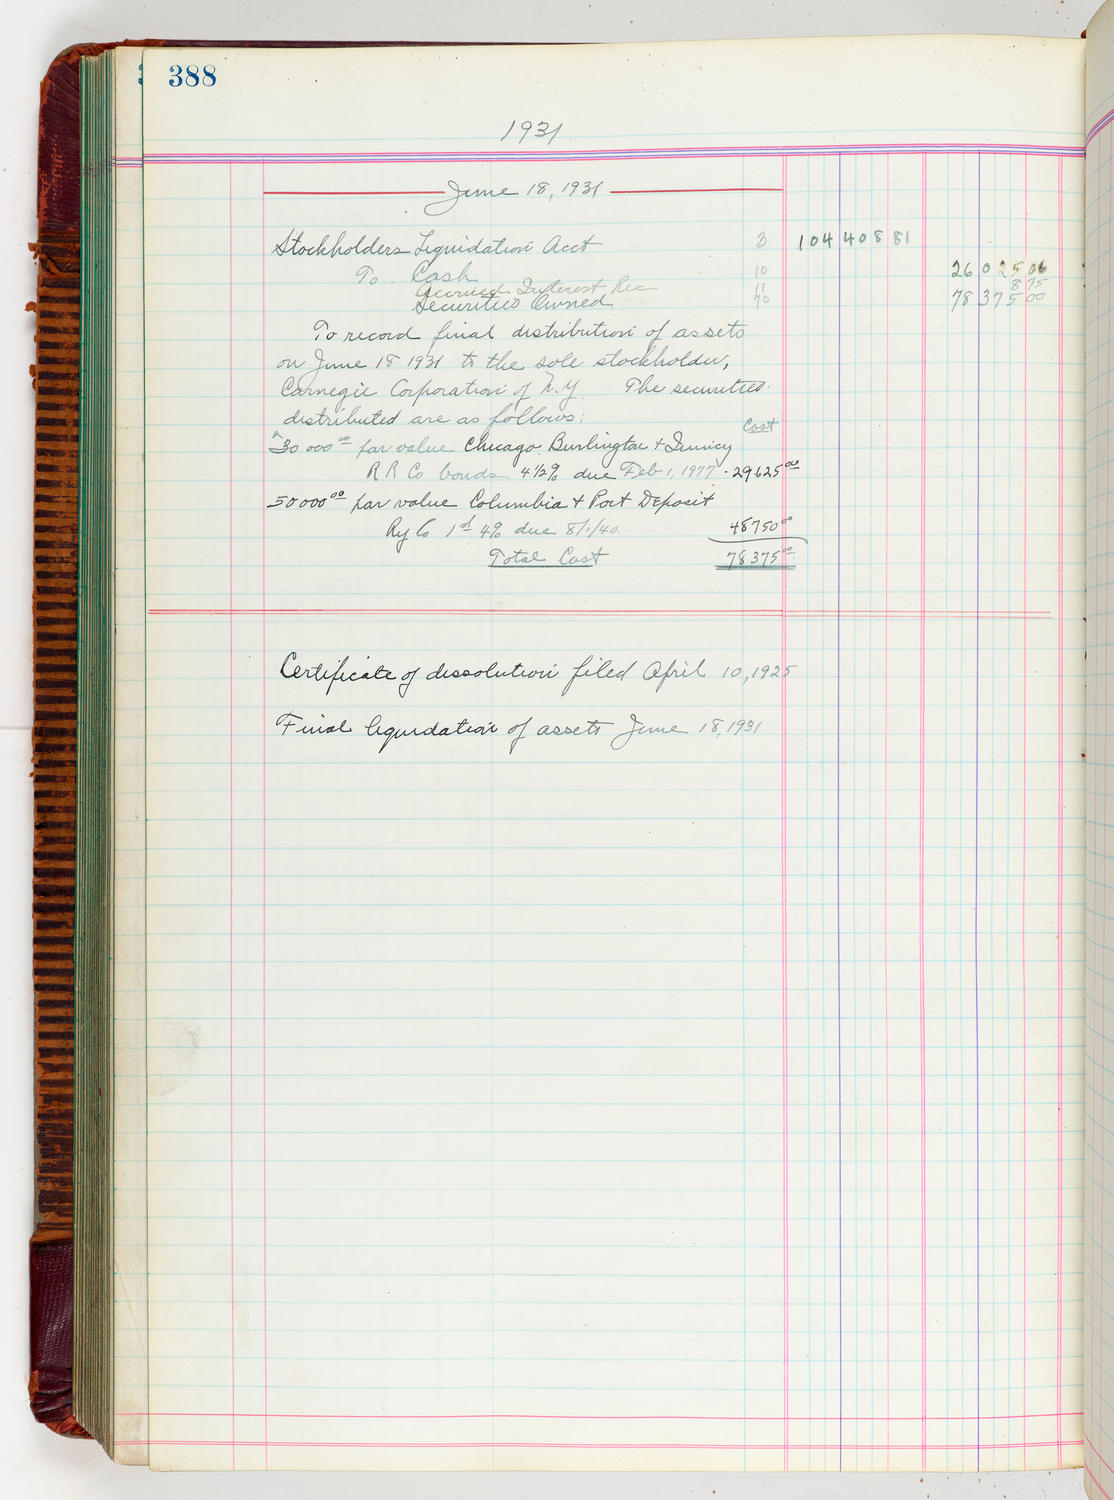 388
1931
June 18, 1931
Stockholders Liquidation Acct 3 104 408 81
To Cash 10 26 025 06
Accrued Interest Rec 11 8 75
Securities Owned 40 78 375 00
To record final distribution of assets
on June 18 1931 to the sole stockholder,
Carnegie Corporation of N.Y. The securities
distributed are as follows: Cost
30 000 00 par value Chicago Burlington & Quincy
R R Co bonds 4 1/2% due Feb 1, 1977 29625 00
50 000 00 par value Columbia & Port Deposit
Ry Co 1st 4% due 8/1/40. 48750 00
Total Cost 78375 00
Certificate of dissolution filed April 10, 1925
Final liquidation of assets June 18, 1931